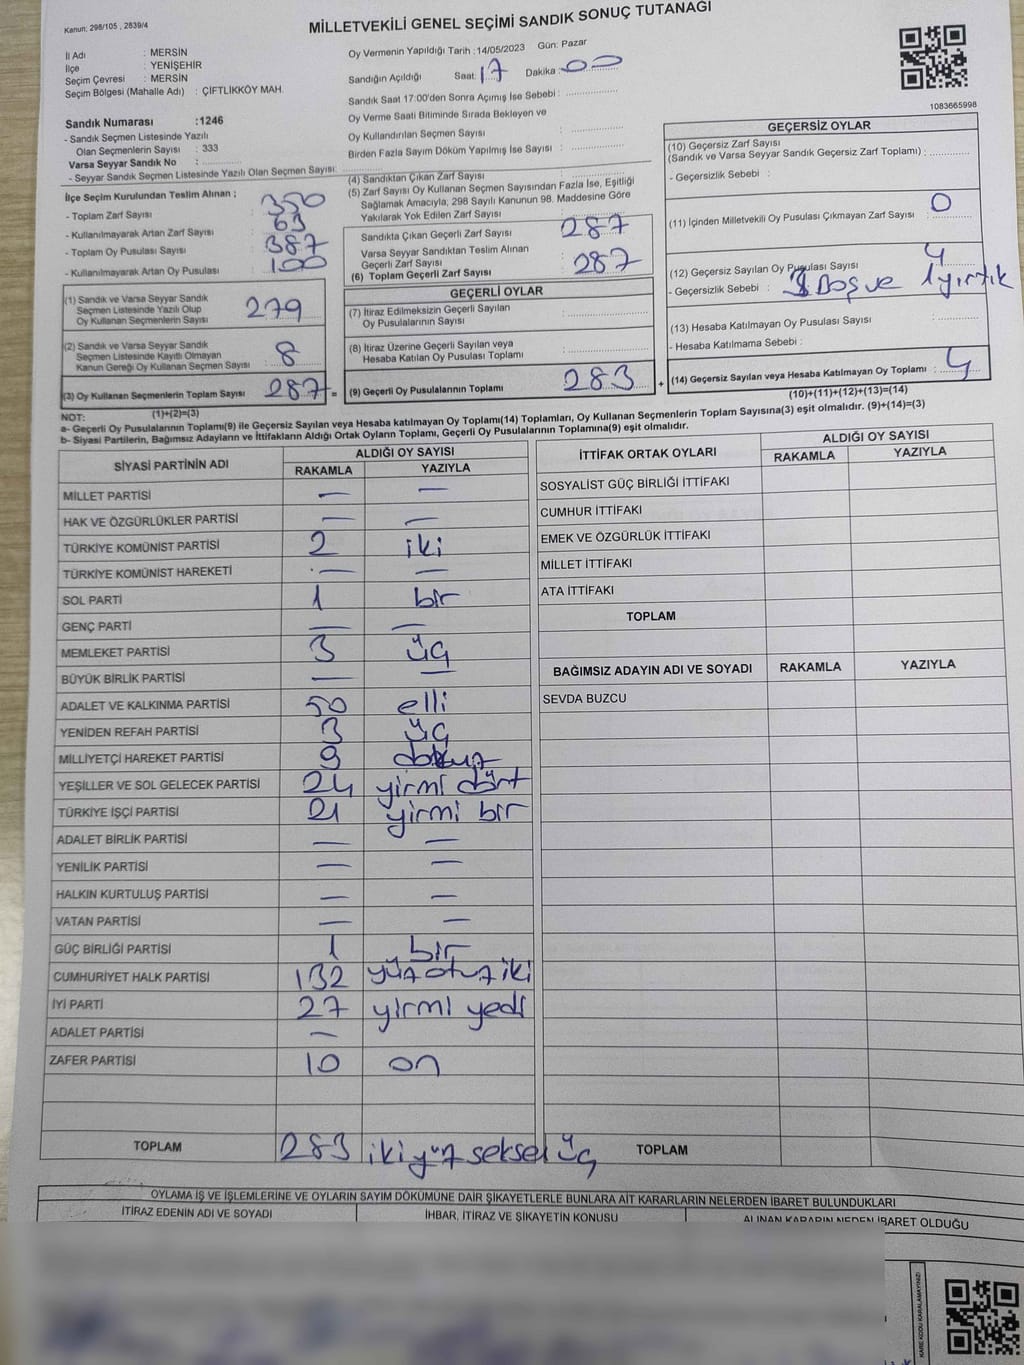 Kanun: 298/105 , 2839/4
MİLLETVEKİLİ GENEL SEÇİMİ SANDIK SONUÇ TUTANAĞI
İl Adı : MERSİN
İlçe : YENİŞEHİR
Seçim Çevresi : MERSİN
Seçim Bölgesi (Mahalle Adı) : ÇİFTLİKKÖY MAH.
Sandık Numarası :1246
- Sandık Seçmen Listesinde Yazılı
Olan Seçmenlerin Sayısı : 333
Varsa Seyyar Sandık No :
- Seyyar Sandık Seçmen Listesinde Yazılı Olan Seçmen Sayısı:
Oy Vermenin Yapıldığı Tarih :14/05/2023 Gün: Pazar
Sandığın Açıldığı Saat: 17 Dakika : 00
Sandık Saat 17:00'den Sonra Açımış İse Sebebi :
Oy Verme Saati Bitiminde Sırada Bekleyen ve
Oy Kullandırılan Seçmen Sayısı :
Birden Fazla Sayım Döküm Yapılmış İse Sayısı :
1083665998
İlçe Seçim Kurulundan Teslim Alınan ;
- Toplam Zarf Sayısı 350
- Kullanılmayarak Artan Zarf Sayısı 63
- Toplam Oy Pusulası Sayısı 387
- Kullanılmayarak Artan Oy Pusulası 100
(1) Sandık ve Varsa Seyyar Sandık
Seçmen Listesinde Yazılı Olup
Oy Kullanan Seçmenlerin Sayısı 279
(2) Sandık ve Varsa Seyyar Sandık
Seçmen Listesinde Kayıtlı Olmayan
Kanun Gereği Oy Kullanan Seçmen Sayısı 8
(3) Oy Kullanan Seçmenlerin Toplam Sayısı 287 =
(1)+(2)=(3)
(4) Sandıktan Çıkan Zarf Sayısı :
(5) Zarf Sayısı Oy Kullanan Seçmen Sayısından Fazla İse, Eşitliği
Sağlamak Amacıyla, 298 Sayılı Kanunun 98. Maddesine Göre
Yakılarak Yok Edilen Zarf Sayısı :
Sandıkta Çıkan Geçerli Zarf Sayısı 287
Varsa Seyyar Sandıktan Teslim Alınan
Geçerli Zarf Sayısı
(6) Toplam Geçerli Zarf Sayısı 287
GEÇERLİ OYLAR
(7) İtiraz Edilmeksizin Geçerli Sayılan
Oy Pusulalarının Sayısı :
(8) İtiraz Üzerine Geçerli Sayılan veya
Hesaba Katılan Oy Pusulası Toplamı :
(9) Geçerli Oy Pusulalarının Toplamı 283 +
GEÇERSİZ OYLAR
(10) Geçersiz Zarf Sayısı
(Sandık ve Varsa Seyyar Sandık Geçersiz Zarf Toplamı) :
- Geçersizlik Sebebi :
(11) İçinden Milletvekili Oy Pusulası Çıkmayan Zarf Sayısı 0
(12) Geçersiz Sayılan Oy Pusulası Sayısı 4
- Geçersizlik Sebebi : 3 Boş ve 1 yırtık
(13) Hesaba Katılmayan Oy Pusulası Sayısı :
- Hesaba Katılmama Sebebi :
(14) Geçersiz Sayılan veya Hesaba Katılmayan Oy Toplamı : 4
(10)+(11)+(12)+(13)=(14)
NOT:
a- Geçerli Oy Pusulalarının Toplamı(9) ile Geçersiz Sayılan veya Hesaba katılmayan Oy Toplamı(14) Toplamları, Oy Kullanan Seçmenlerin Toplam Sayısına(3) eşit olmalıdır. (9)+(14)=(3)
b- Siyasi Partilerin, Bağımsız Adayların ve İttifakların Aldığı Ortak Oyların Toplamı, Geçerli Oy Pusulalarının Toplamına(9) eşit olmalıdır.
SİYASİ PARTİNİN ADI ALDIĞI OY SAYISI
RAKAMLA YAZIYLA
MİLLET PARTİSİ — —
HAK VE ÖZGÜRLÜKLER PARTİSİ — —
TÜRKİYE KOMÜNİST PARTİSİ 2 iki
TÜRKİYE KOMÜNİST HAREKETİ — —
SOL PARTİ 1 bir
GENÇ PARTİ — —
MEMLEKET PARTİSİ 3 üç
BÜYÜK BİRLİK PARTİSİ — —
ADALET VE KALKINMA PARTİSİ 50 elli
YENİDEN REFAH PARTİSİ 3 üç
MİLLİYETÇİ HAREKET PARTİSİ 9 dokuz
YEŞİLLER VE SOL GELECEK PARTİSİ 24 yirmi dört
TÜRKİYE İŞÇİ PARTİSİ 21 yirmi bir
ADALET BİRLİK PARTİSİ — —
YENİLİK PARTİSİ — —
HALKIN KURTULUŞ PARTİSİ — —
VATAN PARTİSİ — —
GÜÇ BİRLİĞİ PARTİSİ 1 bir
CUMHURİYET HALK PARTİSİ 132 yüz otuz iki
İYİ PARTİ 27 yirmi yedi
ADALET PARTİSİ —
ZAFER PARTİSİ 10 on
TOPLAM 283 iki yüz seksel üç
İTTİFAK ORTAK OYLARI ALDIĞI OY SAYISI
RAKAMLA YAZIYLA
SOSYALİST GÜÇ BİRLİĞİ İTTİFAKI
CUMHUR İTTİFAKI
EMEK VE ÖZGÜRLÜK İTTİFAKI
MİLLET İTTİFAKI
ATA İTTİFAKI
TOPLAM
BAĞIMSIZ ADAYIN ADI VE SOYADI RAKAMLA YAZIYLA
SEVDA BUZCU
TOPLAM
OYLAMA İŞ VE İŞLEMLERİNE VE OYLARIN SAYIM DÖKÜMÜNE DAİR ŞİKAYETLERLE BUNLARA AİT KARARLARIN NELERDEN İBARET BULUNDUKLARI
İTİRAZ EDENİN ADI VE SOYADI İHBAR, İTİRAZ VE ŞİKAYETİN KONUSU ALINAN KARARIN NEDEN İBARET OLDUĞU
KARE KODU KARALAMAYINIZ!